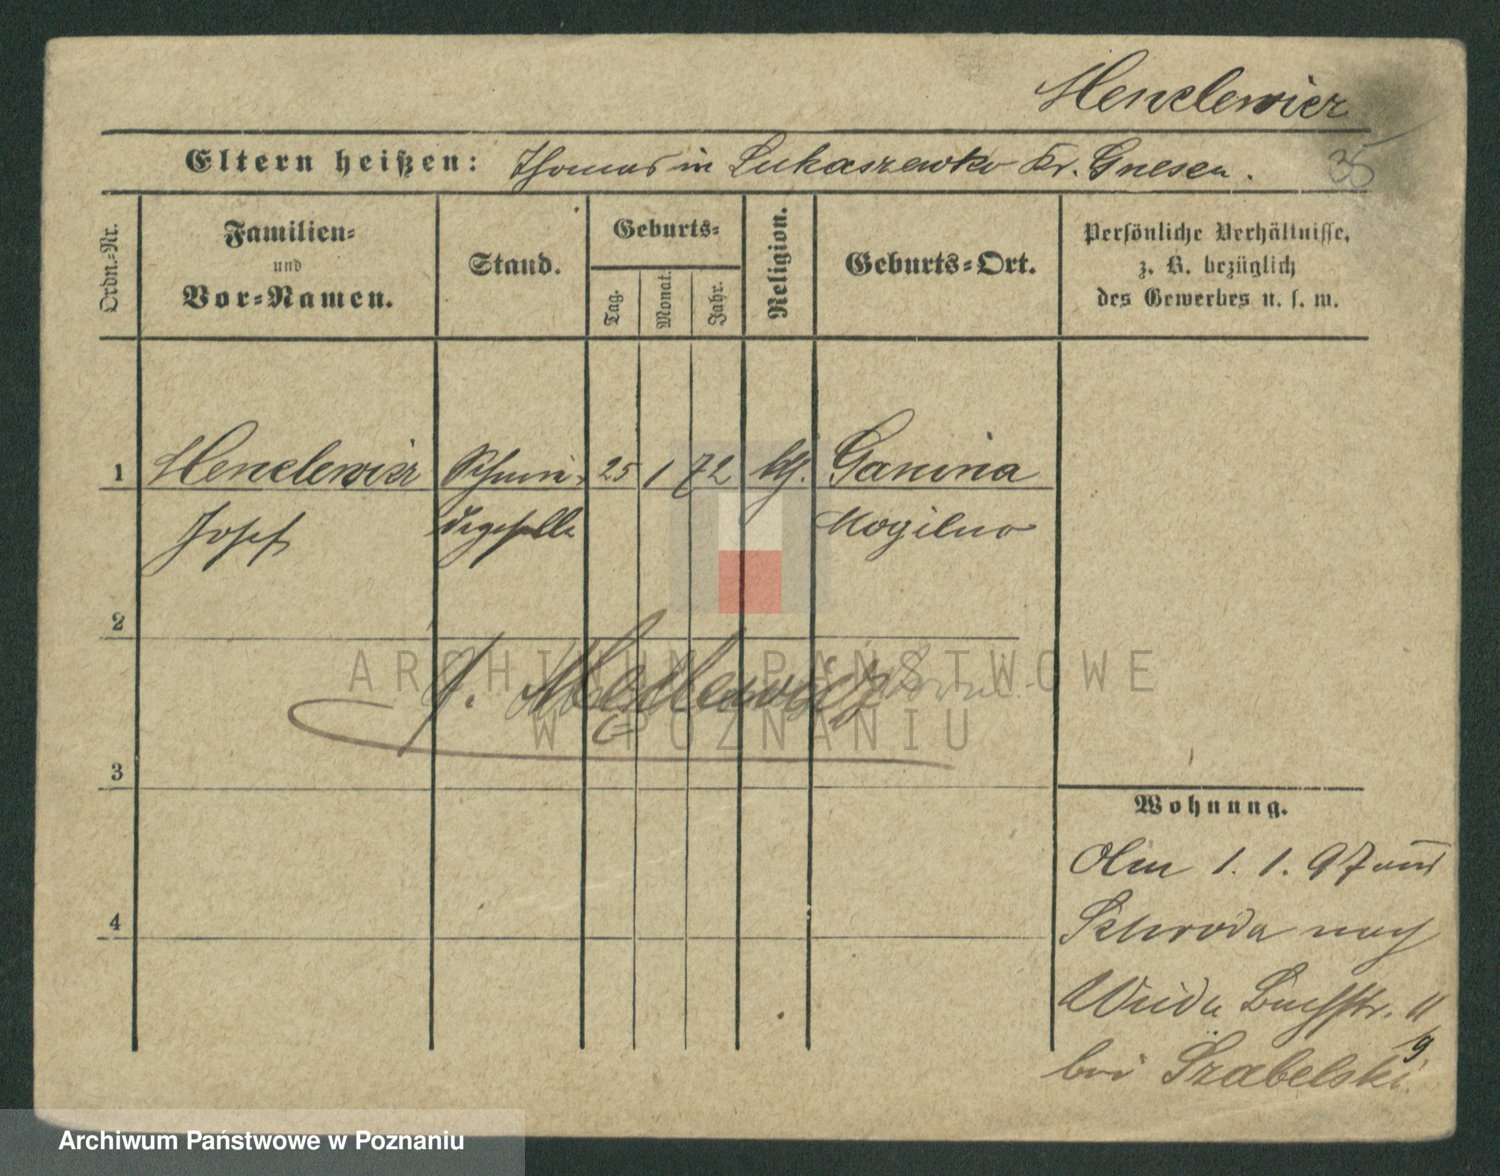 Henclewicz
Eltern heißen: Thomas in Lukaszewko Kr. Gnesen.
35
Ordn.-Nr.
Familien-
und
Vor-Namen.
Stand.
Geburts-
Tag.
Monat.
Jahr.
Religion.
Geburts-Ort.
Persönliche Verhältnisse,
z. B. bezüglich
des Gewerbes u. s. w.
1 Henclewicz Schmie- 25 1 72 kth. Ganina
Josef degeselle Mogilno
2
J. Henclewicz
3
4
Wohnung.
Am 1. 1. 97 aus
Schroda nach
Wilda Bachstr. 11
bei Szabelski.
9
ARCHIWUM PAŃSTWOWE
W POZNANIU
Archiwum Państwowe w Poznaniu